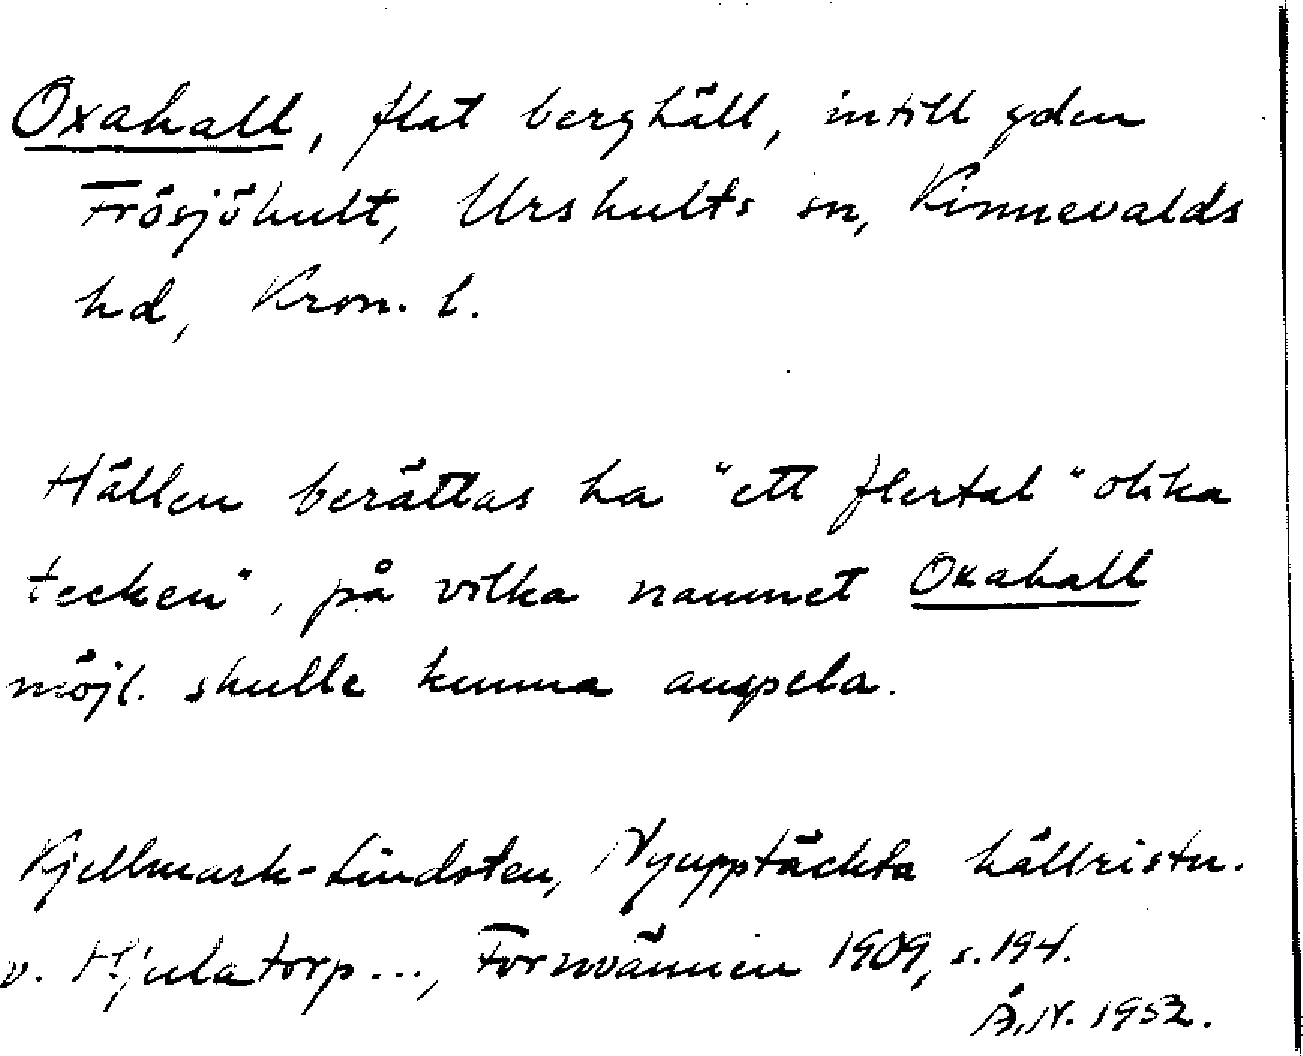 Oxahall, flat berghäll, intill gden
Frösjöhult, Urshults sn, Kinnevalds
hd, Kron. l.
Hällen berättas ha "ett flertal" olika
tecken", på vilka namnet Oxahall
möjl. skulle kunna anspela.
Kjellmark-Lindsten, Nyupptäckta hällristn.
v. Hjulatorp..., Fornvännen 1909, s. 194.
Å.N. 1952.